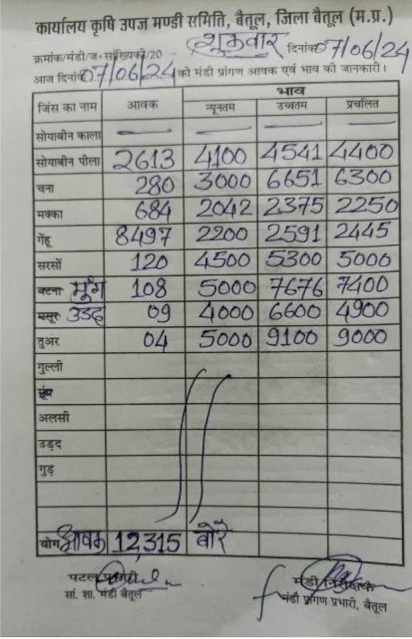 कार्यालय कृषि उपज मण्डी समिति, बैतूल, जिला बैतूल (म.प्र.)
क्रमांक/मंडी/ज-सांख्यिकी/20 शुक्रवार दिनांक 07/06/24
आज दिनांक 07/06/24 को मंडी प्रांगण आवक एवं भाव की जानकारी।
जिंस का नाम आवक भाव
न्यूनतम उच्चतम प्रचलित
सोयाबीन काला — — — —
सोयाबीन पीला 2613 4100 4541 4400
चना 280 3000 6651 6300
मक्का 684 2042 2375 2250
गेंहू 8497 2200 2591 2445
सरसों 120 4500 5300 5000
बटना मूंग 108 5000 7676 7400
मसूर उडद 09 4000 6600 4900
तुअर 04 5000 9100 9000
गुल्ली
मूंग
अलसी
उड़द
गुड़
योग आवक 12,315 बोरे
सां. शा. मंडी बैतूल
मंडी निरीक्षक
मंडी प्रांगण प्रभारी, बैतूल